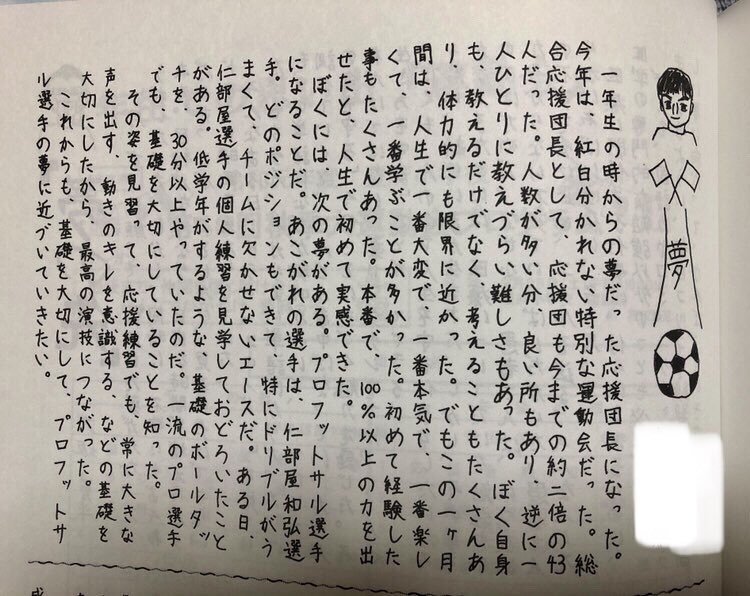 夢
一年生の時からの夢だった応援団長になった。
今年は、紅白分かれない特別な運動会だった。総
合応援団長として、応援団も今までの約二倍の43
人だった。人数が多い分、良い所もあり、逆に一
人ひとりに教えづらい難しさもあった。ぼく自身
も、教えるだけでなく、考えることもたくさんあ
り、体力的にも限界に近かった。でもこの一ヶ月
間は、人生で一番大変で、一番本気で、一番楽し
くて、一番学ぶことが多かった。初めて経験した
事もたくさんあった。本番で、100％以上の力を出
せたと、人生で初めて実感できた。
ぼくには、次の夢がある。プロフットサル選手
になることだ。あこがれの選手は、仁部屋和弘選
手。どのポジションもできて、特にドリブルがう
まくて、チームに欠かせないエースだ。ある日、
仁部屋選手の個人練習を見学しておどろいたこと
がある。低学年がするような、基礎のボールタッ
チを、30分以上やっていたのだ。一流のプロ選手
でも、基礎を大切にしていることを知った。
その姿を見習って、応援練習でも、常に大きな
声を出す、動きのキレを意識する、などの基礎を
大切にしたから、最高の演技につながった。
これからも、基礎を大切にして、プロフットサ
ル選手の夢に近づいていきたい。